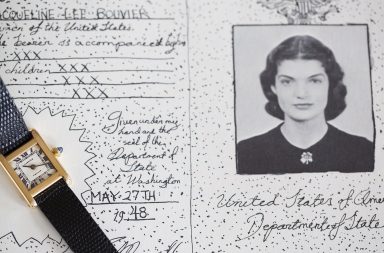 JACQUELINE LEE BOUVIER
of the United States.
the bearer is accompanied by
XXX
children XXX
XXX
Given under my
hand and the
seal of the
Department of
State
at Washington
MAY 27TH
1948
United States of Ame
Department of State